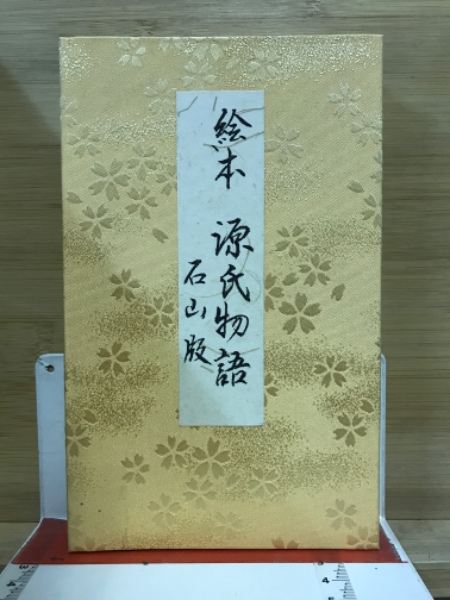 絵本 源氏物語
石山版